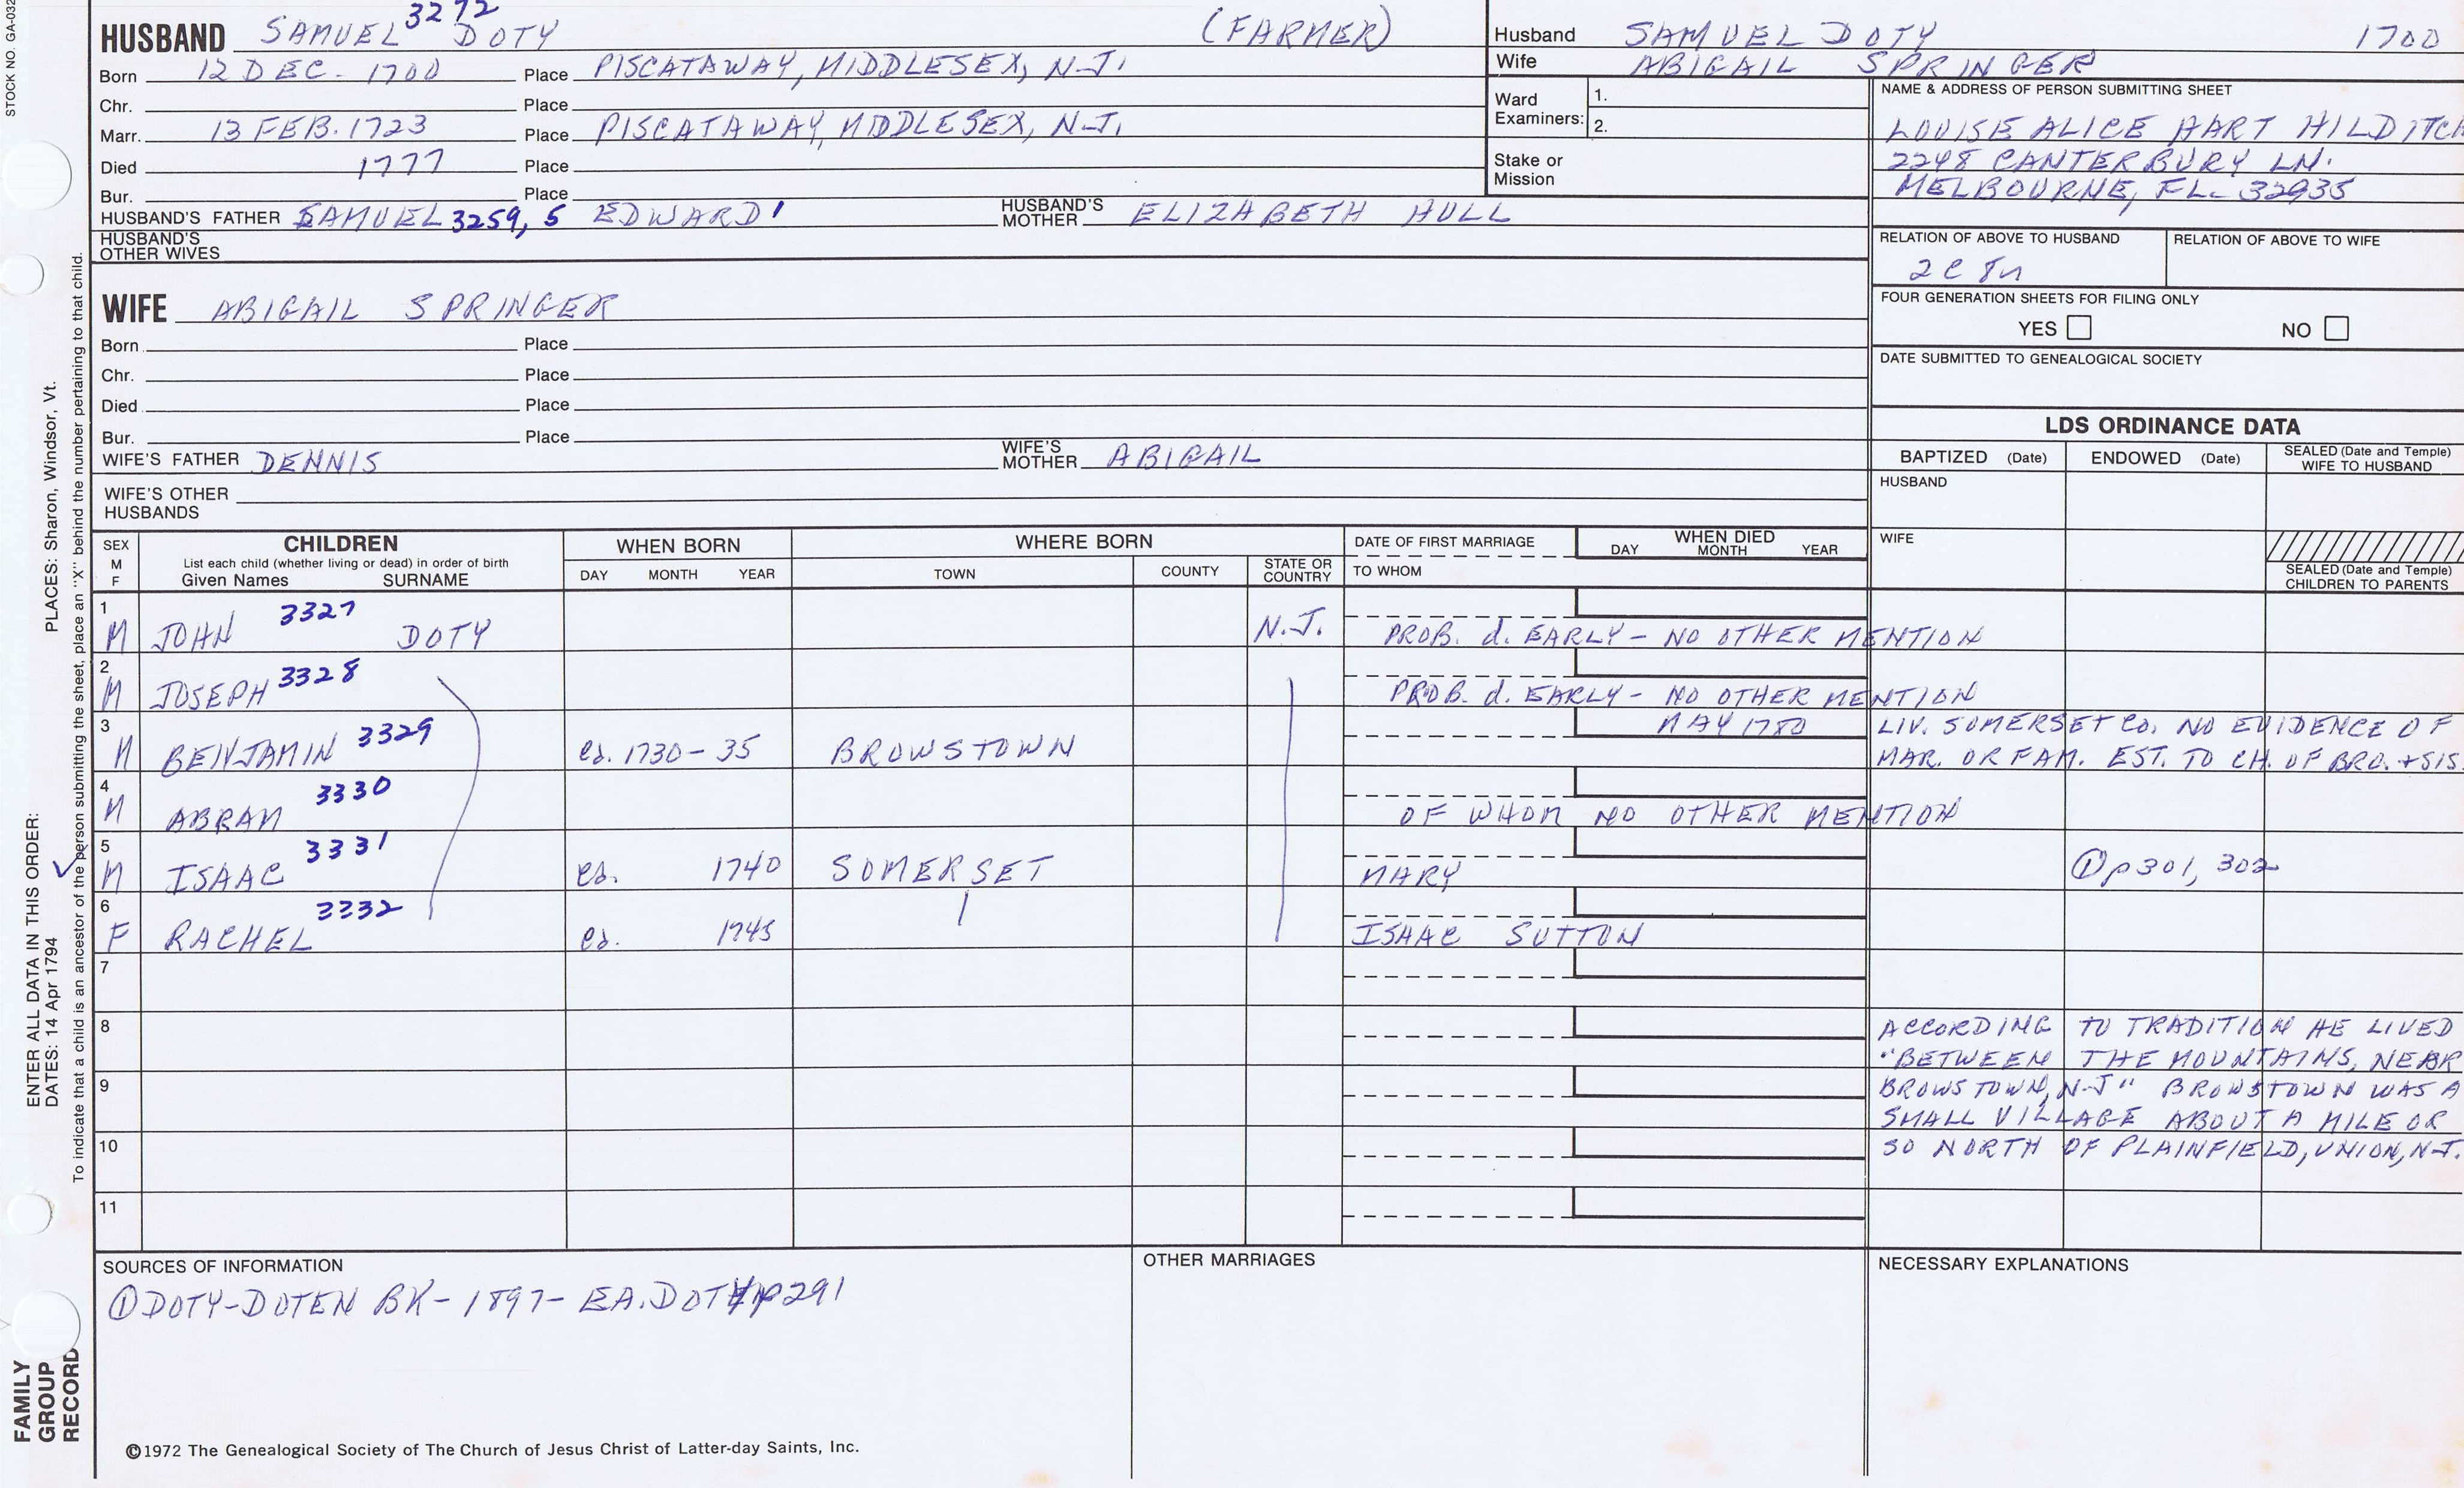 STOCK NO. GA-032
HUSBAND SAMUEL 3272 DOTY (FARMER)
Born 12 DEC. 1700 Place PISCATAWAY, MIDDLESEX, N.J.
Chr. Place
Marr. 13 FEB. 1723 Place PISCATAWAY, MIDDLESEX, N.J.
Died 1777 Place
Bur. Place
HUSBAND'S FATHER SAMUEL 3259, 5 EDWARD 1 HUSBAND'S MOTHER ELIZABETH HULL
HUSBAND'S OTHER WIVES
Husband SAMUEL DOTY 1700
Wife ABIGAIL SPRINGER
Ward Examiners: 1.
2.
Stake or Mission
NAME & ADDRESS OF PERSON SUBMITTING SHEET
LOUISE ALICE HART HILDITCH
2248 CANTERBURY LN.
MELBOURNE, FL. 32935
RELATION OF ABOVE TO HUSBAND RELATION OF ABOVE TO WIFE
2C 8
FOUR GENERATION SHEETS FOR FILING ONLY
YES NO
DATE SUBMITTED TO GENEALOGICAL SOCIETY
WIFE ABIGAIL SPRINGER
Born Place
Chr. Place
Died Place
Bur. Place
WIFE'S FATHER DENNIS WIFE'S MOTHER ABIGAIL
WIFE'S OTHER HUSBANDS
LDS ORDINANCE DATA
BAPTIZED (Date) ENDOWED (Date) SEALED (Date and Temple) WIFE TO HUSBAND
HUSBAND
WIFE
SEALED (Date and Temple) CHILDREN TO PARENTS
SEX M F
CHILDREN
List each child (whether living or dead) in order of birth
Given Names SURNAME
WHEN BORN
DAY MONTH YEAR
WHERE BORN
TOWN COUNTY STATE OR COUNTRY
DATE OF FIRST MARRIAGE
TO WHOM
WHEN DIED
DAY MONTH YEAR
1 M JOHN 3327 DOTY N.J. PROB. d. EARLY - NO OTHER MENTION
2 M JOSEPH 3328 PROB. d. EARLY - NO OTHER MENTION
3 M BENJAMIN 3329 ca. 1730-35 BROWSTOWN MAY 1780 LIV. SOMERSET CO. NO EVIDENCE OF
MAR. OR FAM. EST. TO CH. OF BRO. + SIS.
4 M ABRAM 3330 OF WHOM NO OTHER MENTION
5 M ISAAC 3331 ca. 1740 SOMERSET MARY ① p 301, 302
6 F RACHEL 3332 ca. 1745 ISAAC SUTTON
7
8
9
10
11
ACCORDING TO TRADITION HE LIVED
"BETWEEN THE MOUNTAINS, NEAR
BROWSTOWN, N.J." BROWSTOWN WAS A
SMALL VILLAGE ABOUT A MILE OR
SO NORTH OF PLAINFIELD, UNION, N.J.
SOURCES OF INFORMATION
① DOTY-DOTEN BK - 1897 - EA. DOTY p291
OTHER MARRIAGES
NECESSARY EXPLANATIONS
©1972 The Genealogical Society of The Church of Jesus Christ of Latter-day Saints, Inc.
FAMILY
GROUP
RECORD
ENTER ALL DATA IN THIS ORDER:
DATES: 14 Apr 1794 PLACES: Sharon, Windsor, Vt.
To indicate that a child is an ancestor of the person submitting the sheet, place an "X" behind the number pertaining to that child.